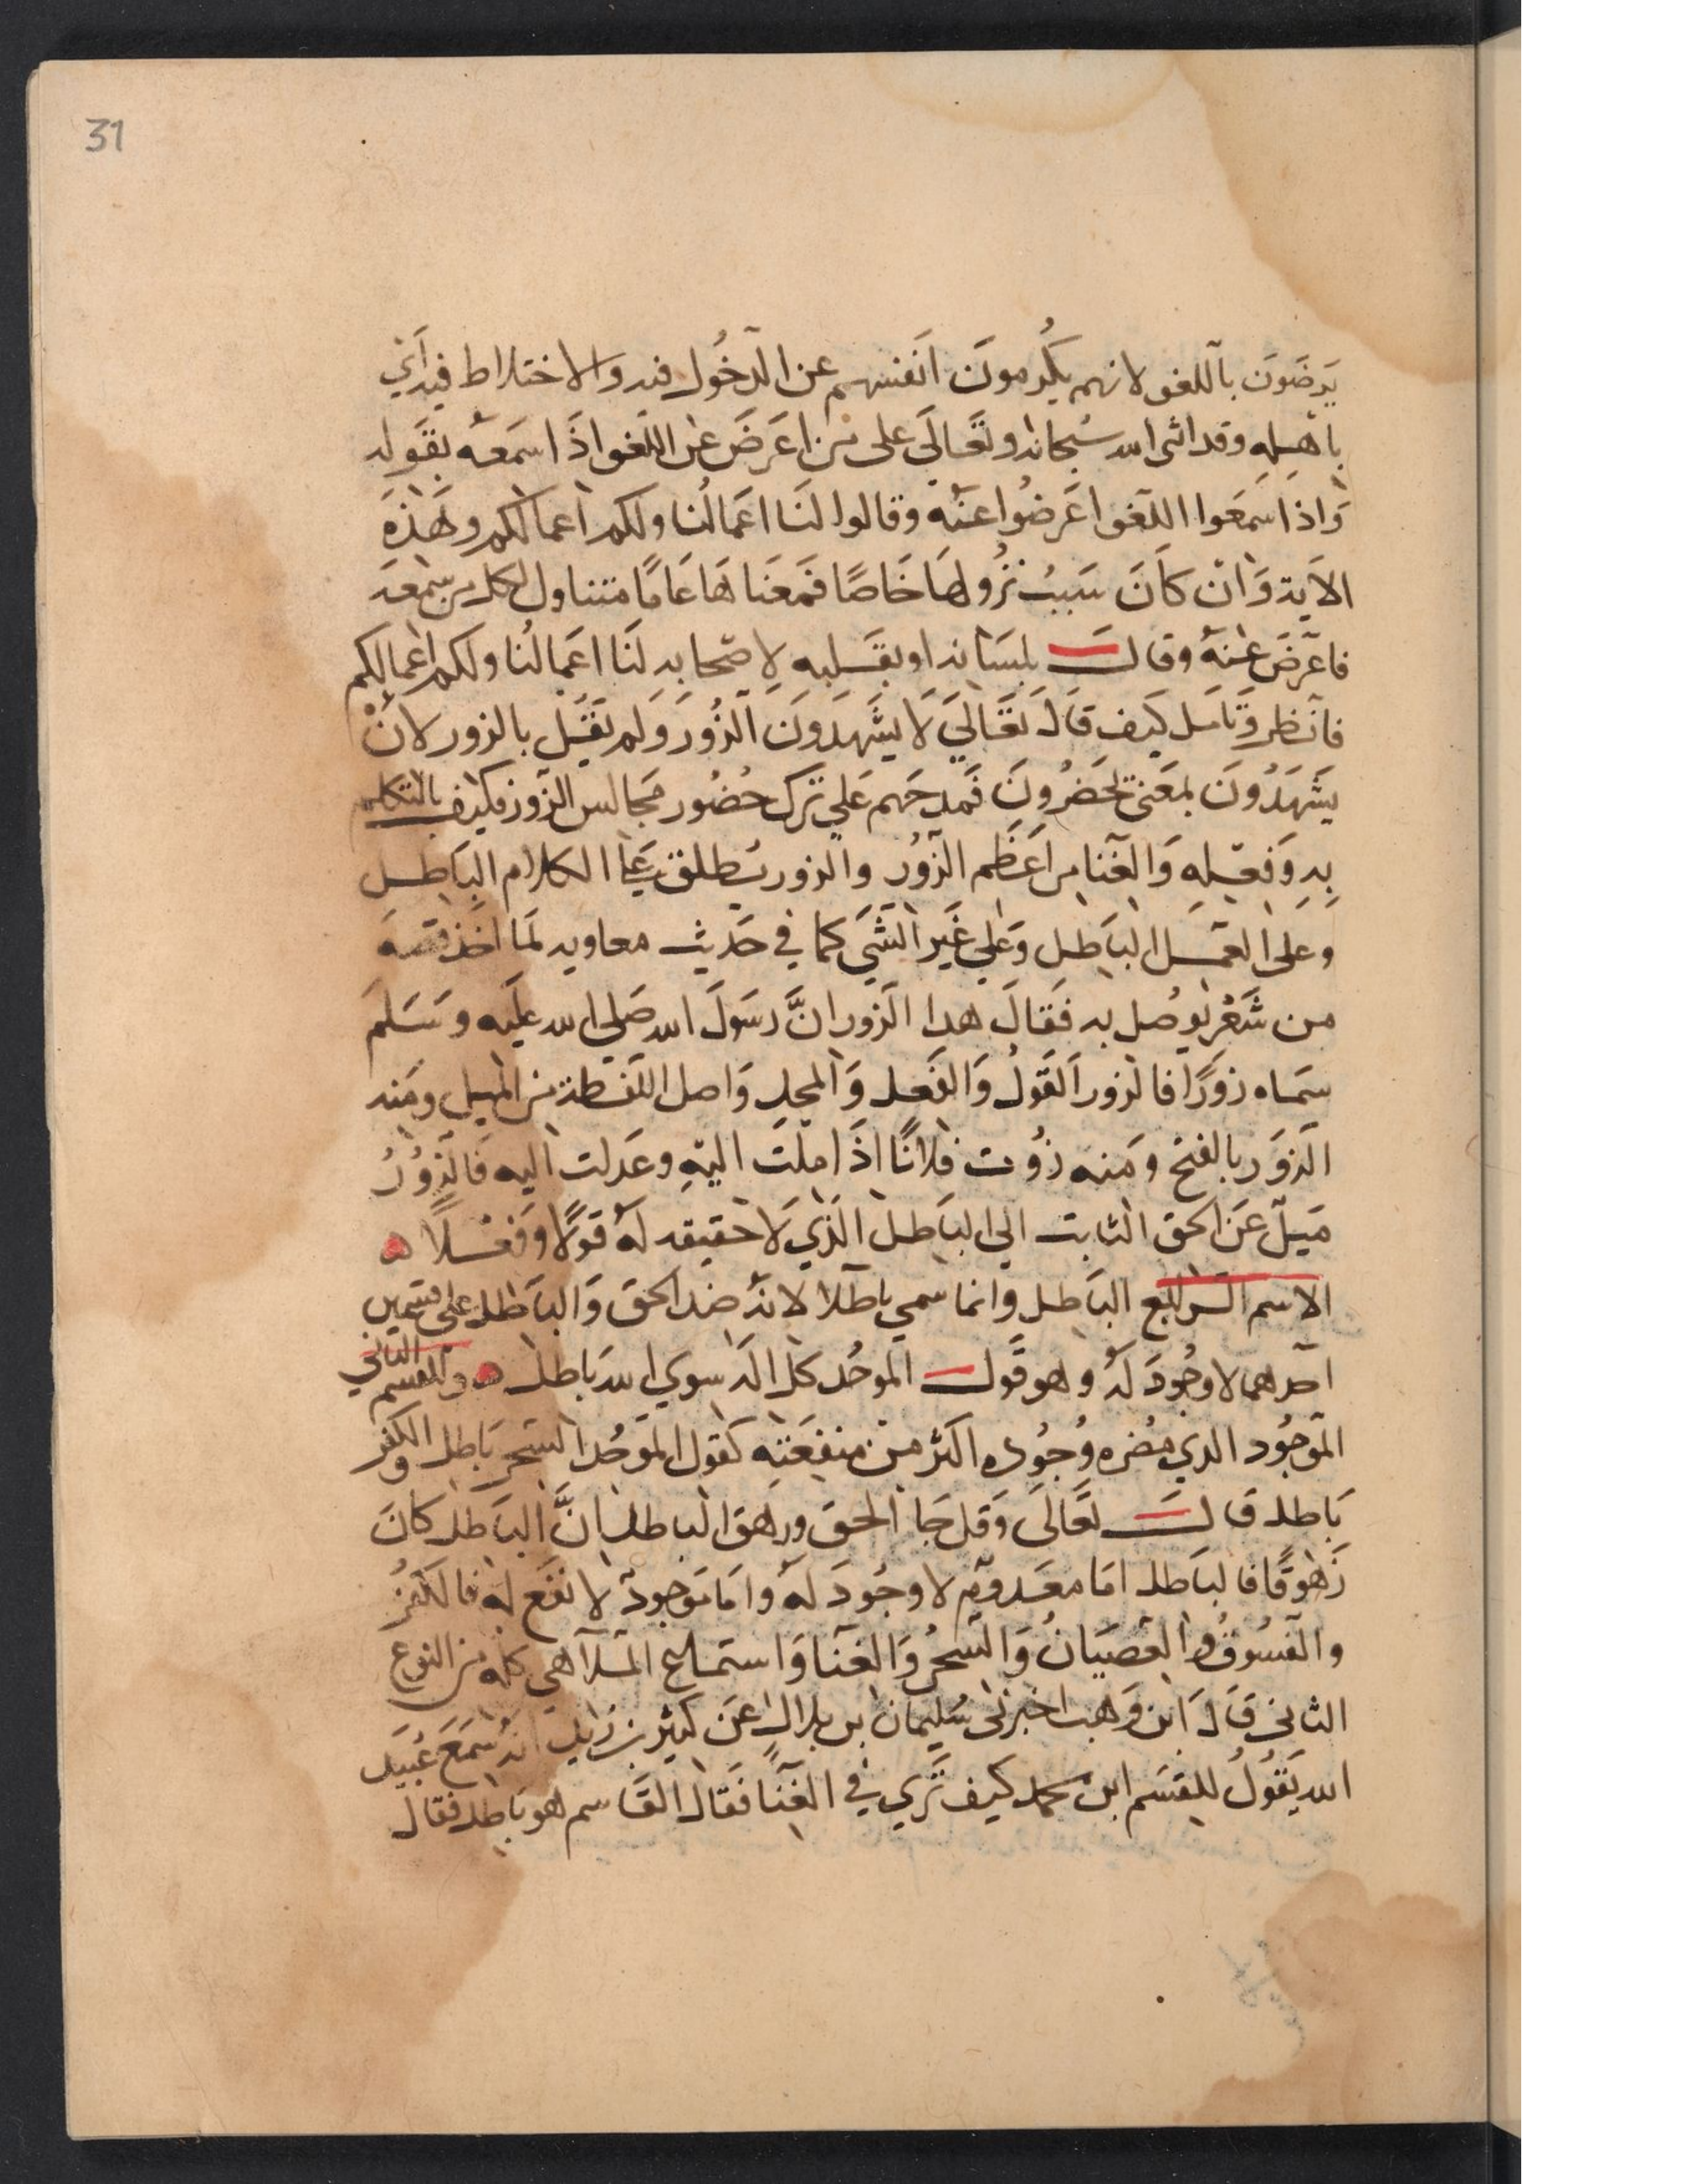 31
يَرضَونَ باللغو لانهم يكرمونَ انَفسهم عن الدخُول فيه والاختلاط فيه اي
باهله وقد اثنى الله سُبحانه وتعَالَي على من اعَرضَ عن اللغو اذَا سَمعه بقَوله
وَاذا سَمعَوا اللغو اعَرضُوا عنه وقالوا لنَا اعَمالُنا ولكم اعمالكم وهَذه
الايَة وَان كاَنَ سَببُ نزُولهَا خَاصًا فمعَناهَا عَامًا متناول لكل من سمعه
فاعرضَ عنه وقالــَـ بلسَانه او بقَلبه لاصحابه لنَا اعَمالنُا ولكم اعمالكم
فانظر وتَامَل كيَف قاَلَ تعَاليَ لَا يشَهَدَونَ الزُورَ وَلم يقَل بالزور لانْ
يشَهَدُونَ بمعَنى يحَضرُونَ فمَدحَهم عَلي ترك حُضُور مجَالس الزور فكيف بالتكلم
بهِ وَفعَلهِ وَالغنا من اعَظَم الزوُر والزور يُطلق عَلي الكلام البَاطل
وعلى العمَل البَاطل وَعَلي غَير الشَي كما في حَديث معاويه لمَا اخذ قصه
من شَعْر يوُصل به فقَالَ هدا الزور انَّ رسَولَ الله صَلي الله علَيه وسَلم
سَماه زورًا فالزور القَولُ وَالفَعل وَالمحل وَاصل اللفظة من الميل ومَنه
الزوَر بالفتح ومَنه زُوت فلانًا اذَا ملتَ اليَهِ وعَدلت اليه فَالزوُرُ
مَيلٌ عَن الحق الثابت الي البَاطل الذَي لَا حقيقه لهُ قوَلًا وَفعْلًا ه
الاسم الرابع البَاطل وانما سمي باطلا لانهُ ضد الحَق وَالبَاطل على قسَمين
احدهما لا وجُودَ لهُ وهو قَولــ الموحُد كل اله سوي الله بَاطل ه والقسم الثاني
الموَجُود الدي مضُره وُجُوده اكثر من منفعَته كقول الموَحُد السَحر باطل والكفر
بَاطل قالــَـ تعَالَى وَقل جَا الحَق وزهق الباطل انَّ البَاطل كانَ
زَهوقًا فالبَاطل امَا معَدومٌ لا وجُودَ لهُ وامَا مَوجودٌ لا نفَع له فالكفرُ
والفَسُوقُ والعصَيَانُ وَالسحُر وَالغنَا وَاستمَاع المَلاهي كله من النوع
الثاني قاَلَ ابن وَهب اخبرني سُليمان بن بلال عَن كثير بن زيد انهُ سَمعَ عُبيَد
الله يقَوُلُ للقسَم ابن محمد كيف ترَي في الغنَا فقَال القَاسم هو بَاطل فقال